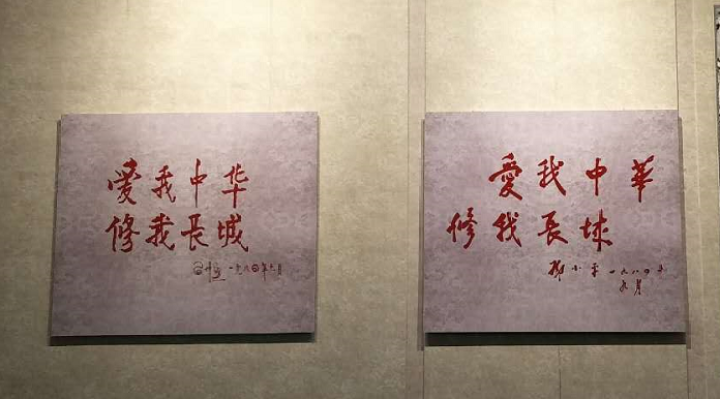 愛我中华
修我長城
一九八四年九月
愛我中華
修我長城
鄧小平 一九八四年
九月